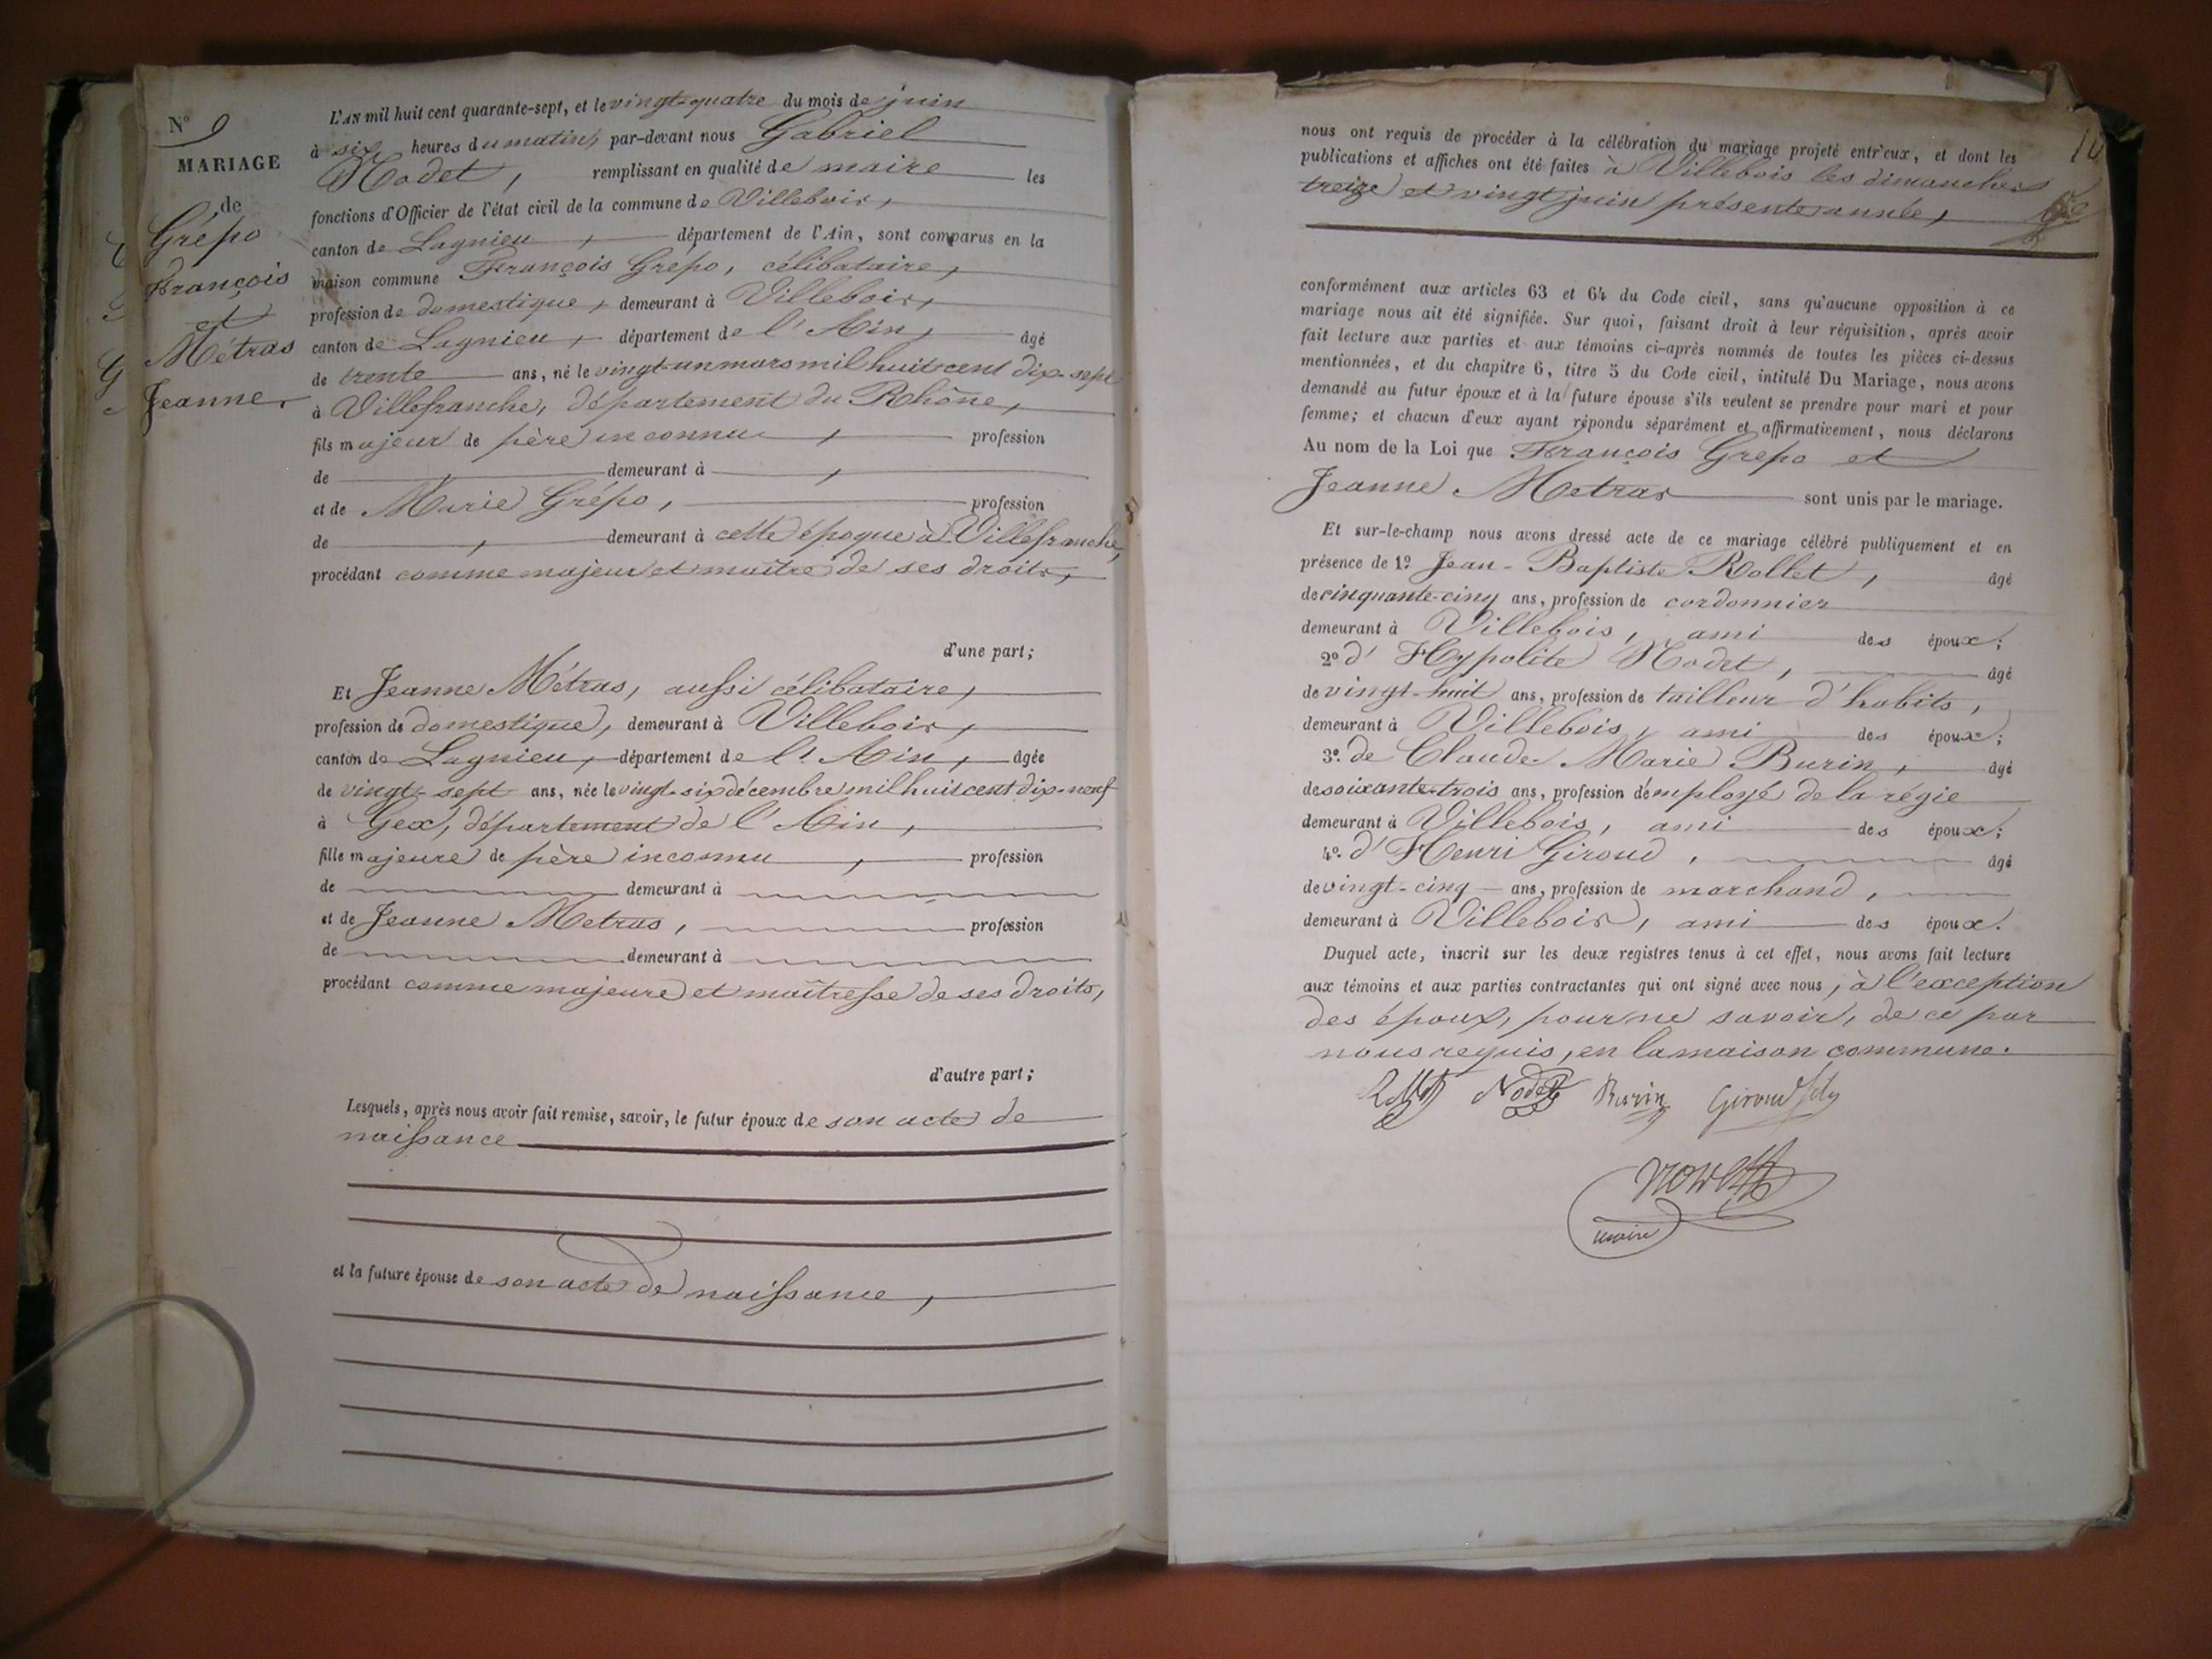 N° 9
MARIAGE
de
Grépo
François
et
Métras
Jeanne.
L'AN mil huit cent quarante-sept, et le vingt-quatre du mois de juin
à six heures du matin, par-devant nous Gabriel
Nodet, remplissant en qualité de maire les
fonctions d'Officier de l'état civil de la commune de Villebois,
canton de Lagnieu, département de l'Ain, sont comparus en la
maison commune François Grepo, célibataire,
profession de domestique, demeurant à Villebois,
canton de Lagnieu, département de l'Ain, âgé
de trente ans, né le vingt-un mars mil huit cent dix-sept
à Villefranche, département du Rhône,
fils majeur de père inconnu, profession
de , demeurant à ,
et de Marie Grépo, profession
de , demeurant à cette époque à Villefranche,
procédant comme majeur et maître de ses droits,
d'une part;
Et Jeanne Métras, aussi célibataire,
profession de domestique, demeurant à Villebois,
canton de Lagnieu, département de l'Ain, âgée
de vingt-sept ans, née le vingt-six décembre mil huit cent dix-neuf
à Gex, département de l'Ain,
fille majeure de père inconnu, profession
de demeurant à
et de Jeanne Metras, profession
de demeurant à
procédant comme majeure et maîtresse de ses droits,
d'autre part;
Lesquels, après nous avoir fait remise, savoir, le futur époux de son acte de
naissance
et la future épouse de son acte de naissance,
10
nous ont requis de procéder à la célébration du mariage projeté entr'eux, et dont les
publications et affiches ont été faites à Villebois les dimanches
treize et vingt juin présente année,
conformément aux articles 63 et 64 du Code civil, sans qu'aucune opposition à ce
mariage nous ait été signifiée. Sur quoi, faisant droit à leur réquisition, après avoir
fait lecture aux parties et aux témoins ci-après nommés de toutes les pièces ci-dessus
mentionnées, et du chapitre 6, titre 5 du Code civil, intitulé Du Mariage, nous avons
demandé au futur époux et à la future épouse s'ils veulent se prendre pour mari et pour
femme; et chacun d'eux ayant répondu séparément et affirmativement, nous déclarons
Au nom de la Loi que François Grepo et
Jeanne Metras sont unis par le mariage.
Et sur-le-champ nous avons dressé acte de ce mariage célébré publiquement et en
présence de 1° Jean-Baptiste Rollet, âgé
de cinquante-cinq ans, profession de cordonnier
demeurant à Villebois, ami des époux;
2° d'Hypolite Nodet, âgé
de vingt-huit ans, profession de tailleur d'habits,
demeurant à Villebois, ami des époux;
3° de Claude-Marie Burin, âgé
de soixante-trois ans, profession d'employé de la régie
demeurant à Villebois, ami des époux;
4° d'Henri Giroud, âgé
de vingt-cinq ans, profession de marchand,
demeurant à Villebois, ami des époux.
Duquel acte, inscrit sur les deux registres tenus à cet effet, nous avons fait lecture
aux témoins et aux parties contractantes qui ont signé avec nous, à l'exception
des époux, pour ne savoir, de ce par
nous requis, en la maison commune.
Nodet Burin Giroud
maire